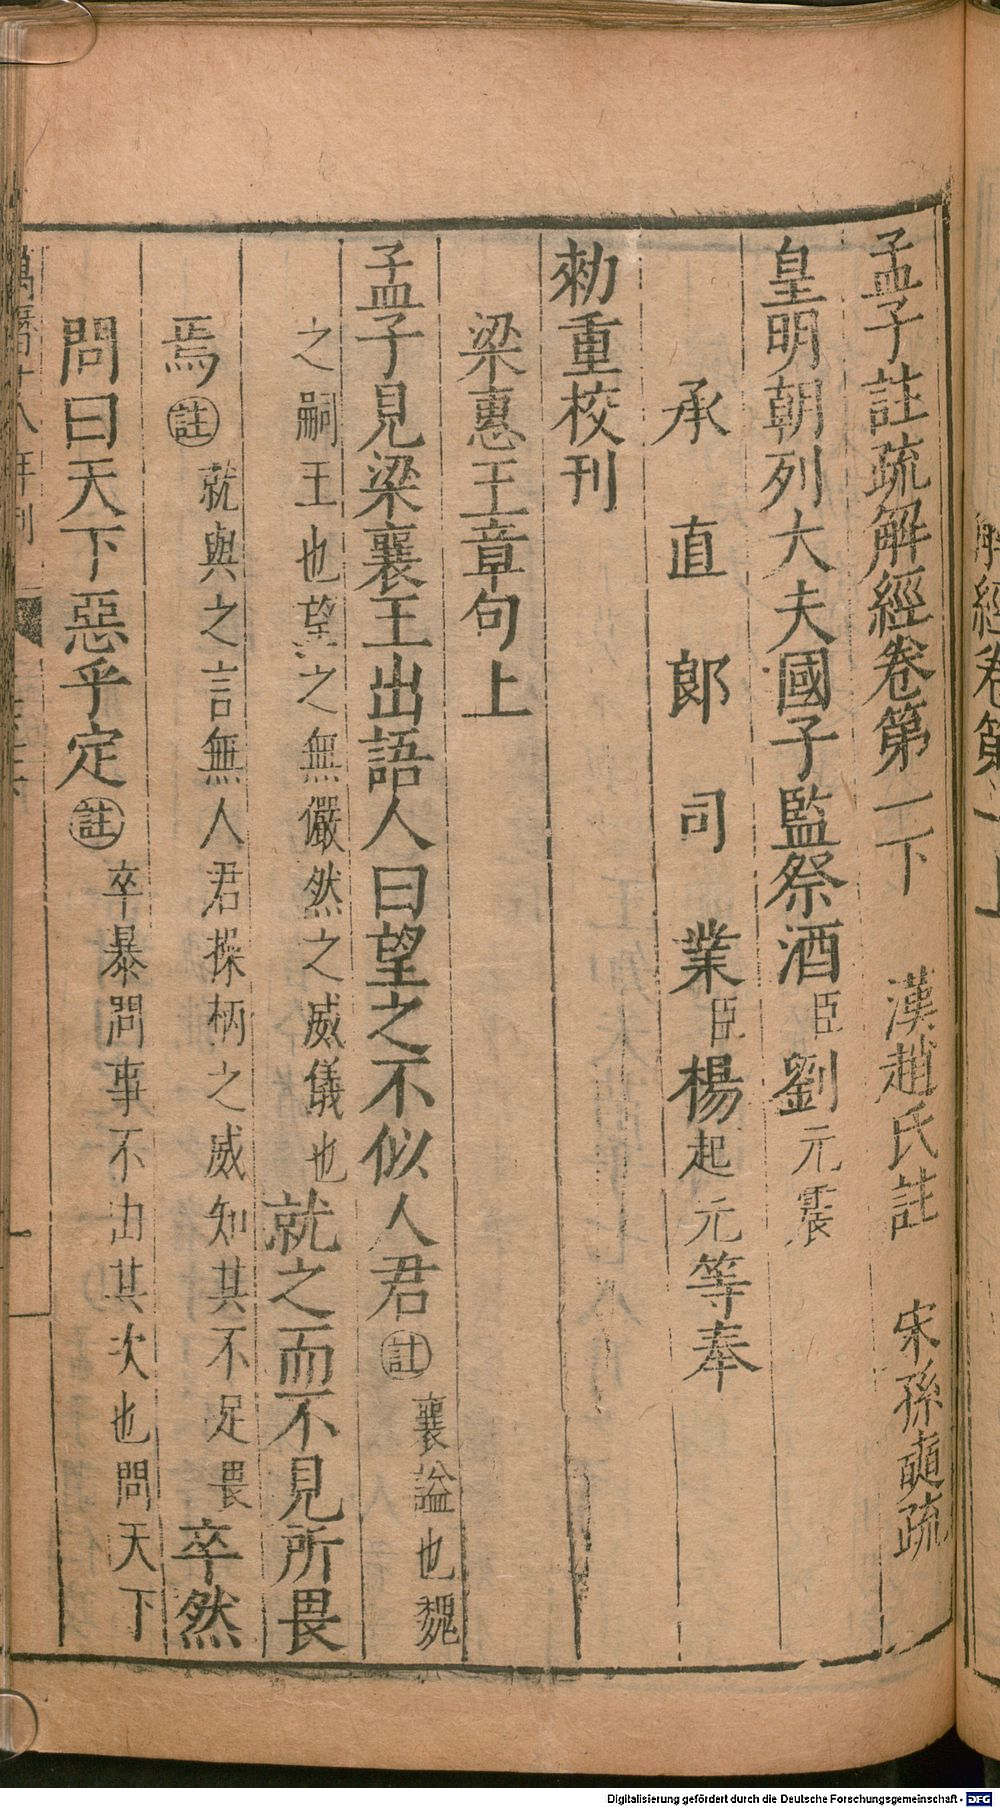 孟子註疏解經卷第一下　漢趙氏註　宋孫奭疏
皇明朝列大夫國子監祭酒臣劉元震
承直郎司業臣楊起元等奉
勑重校刊
梁惠王章句上
孟子見梁襄王出語人曰望之不似人君註襄謚也魏
之嗣王也望之無儼然之威儀也就之而不見所畏
焉註就與之言無人君操柄之威知其不足畏卒然
問曰天下惡乎定註卒暴問事不由其次也問天下
萬曆十八年刊
解經卷第一
Digitalisierung gefördert durch die Deutsche Forschungsgemeinschaft - DFG